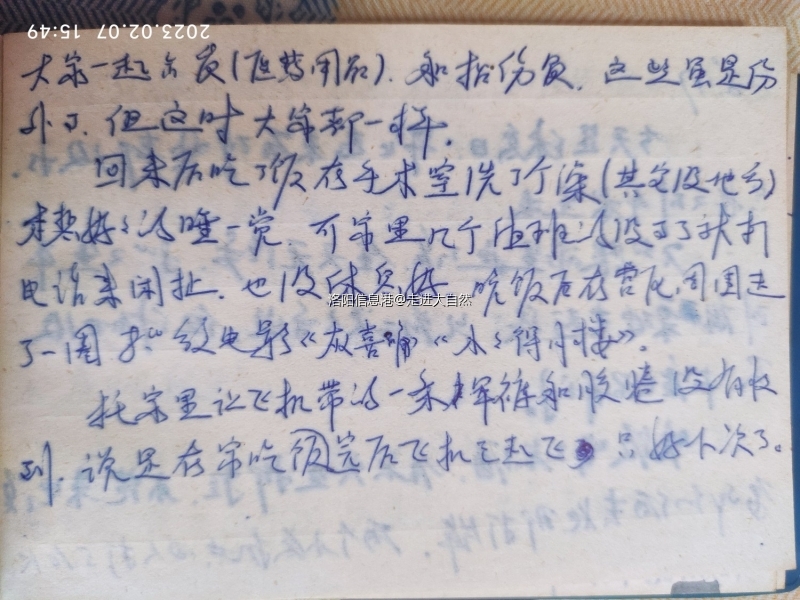 2023.02.07 15:49
大家一起出发(医药用品). 和抬伤员. 这些虽是份
外了. 但这时大家都一样.
回来后吃了饭在手术室洗了个澡(其它没地方)
好好的睡一觉. 可家里几个值班的没事了就打
电话来闲扯. 也没休息好 晚饭后在营区周围走
了一圈 电影《灰喜鹊》《小楼》.
洛阳信息港@走进大自然
托家里让飞机带的一条军裤和胶卷没有收
到. 说是在家吃饭完后飞机已起飞 只好下次了。